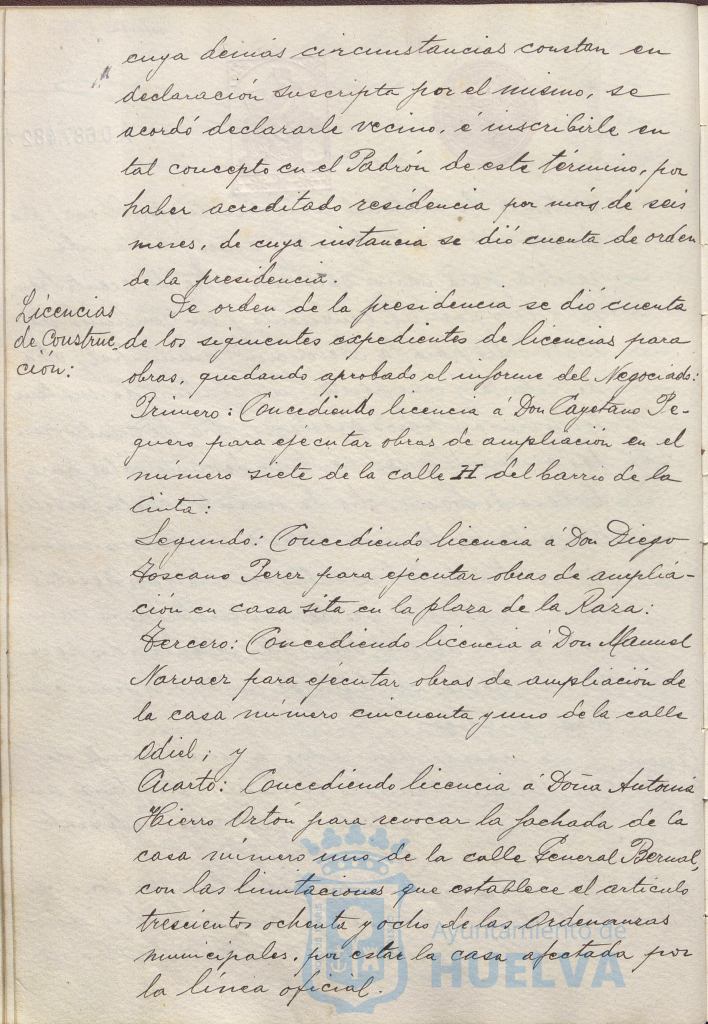 cuya demás circunstancias constan en
declaración suscripta por el mismo, se
acordó declararle vecino, é inscribirle en
tal concepto en el Padrón de este término, por
haber acreditado residencia por más de seis
meses, de cuya instancia se dió cuenta de orden
de la presidencia.
Licencias
de Construc-
ción:
De orden de la presidencia se dió cuenta
de los siguientes expedientes de licencias para
obras, quedando aprobado el informe del Negociado:
Primero: Concediendo licencia á Don Cayetano Pe-
guero para ejecutar obras de ampliación en el
número siete de la calle H del barrio de la
Cinta:
Segundo: Concediendo licencia á Don Diego
Toscano Perez para ejecutar obras de amplia-
ción en casa sita en la plaza de la Raza:
Tercero: Concediendo licencia á Don Manuel
Narvaez para ejecutar obras de ampliación de
la casa número cincuenta y uno de la calle
Odiel; y
Cuarto: Concediendo licencia á Doña Antonia
Hierro Ortón para revocar la fachada de la
casa número uno de la calle General Bernal,
con las limitaciones que establece el articulo
trescientos ochenta y ocho de las Ordenanzas
municipales, por estar la casa afectada por
la línea oficial.
Ayuntamiento de
HUELVA